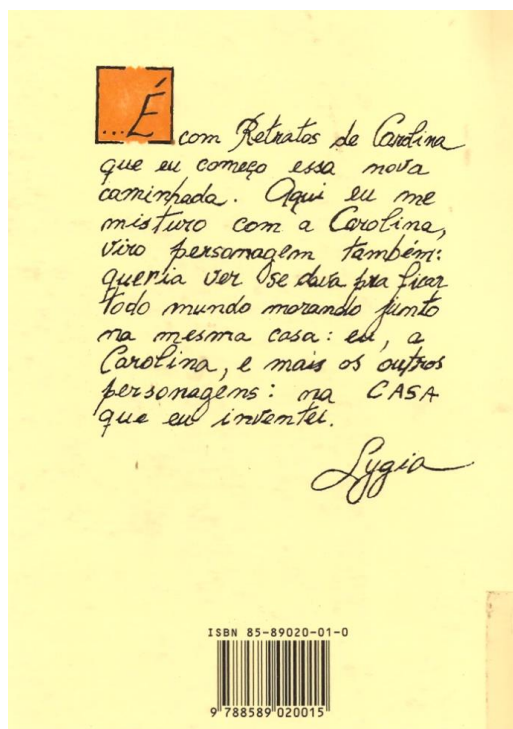 ...É com Retratos de Carolina
que eu começo essa nova
caminhada. Aqui eu me
misturo com a Carolina,
viro personagem também:
queria ver se dava pra ficar
todo mundo morando junto
na mesma casa: eu, a
Carolina, e mais os outros
personagens: na CASA
que eu inventei.
Lygia
ISBN 85-89020-01-0
9 788589 020015